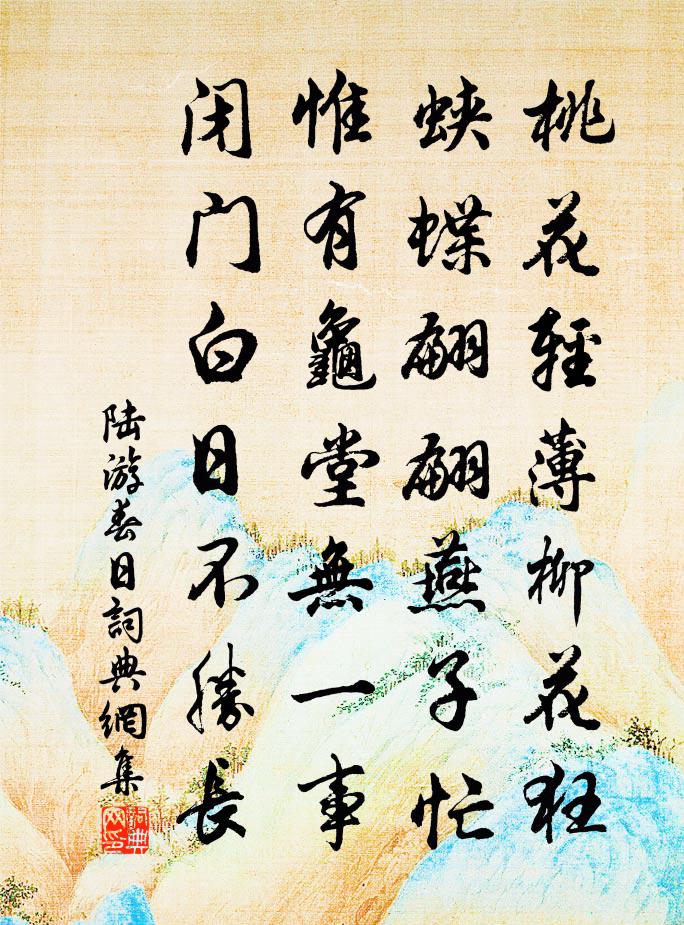 桃花輕薄柳花狂
蛺蝶翩翩燕子忙
惟有龜堂無一事
闭门白日不勝長
陆游春日詞典網集
詞典网印